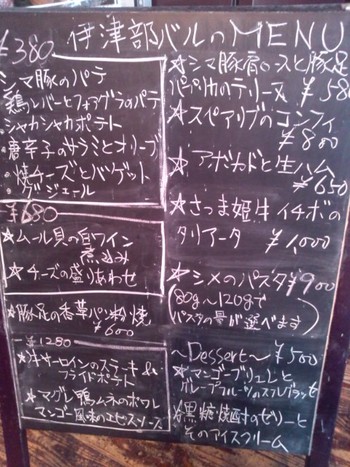 伊津部バルのMENU
¥380
シマ豚のパテ
鶏レバーとフォアグラのパテ
シャカシャカポテト
唐辛子のサラミとオリーブ
焼チーズとバゲット
グジェール
¥680
☆ムール貝の白ワイン
煮込み
☆チーズの盛りあわせ
☆豚足の香草パン粉焼
¥600
¥1,280
☆牛サーロインのステーキ&
フライドポテト
☆マグレ鴨ムネのポワレ
マンゴー風味の
ソース
★シマ豚肩ロースと豚足
のテリーヌ ¥580
★スペアリブのコンフィ
¥800
★アボカドと生ハム
¥650
★さつま姫牛イチボの
タリアータ ¥1,000
★シメのパスタ¥900
(80g〜120gで
パスタの量が選べます)
〜Dessert〜 ¥500
★マンゴーブリュレと
グレープフルーツの
黒糖焼酎のゼリーと
そのアイスクリーム